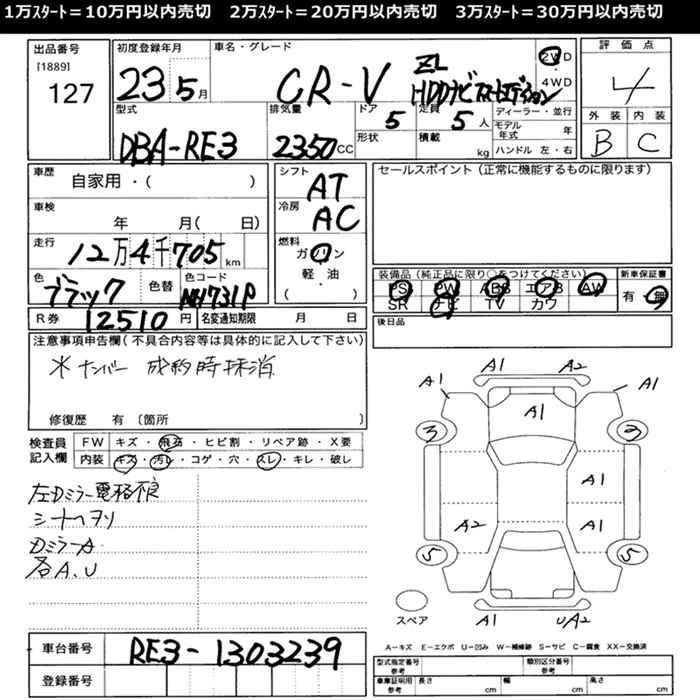 1万ｽﾀｰﾄ＝10万円以内売切　2万ｽﾀｰﾄ＝20万円以内売切　3万ｽﾀｰﾄ＝30万円以内売切
出品番号
[1889]
127
初度登録年月
23 5月
車名・グレード
CR-V ZL
HDDナビ
2WD
4WD
評価点
4
型式
DBA-RE3
排気量
2350 CC
ドア
5
定員
5人
形状
積載
kg
ディーラー・並行
モデル年式 年
ハンドル 左・右
外装 内装
B C
車歴
自家用・( )
シフト
AT
セールスポイント（正常に機能するものに限ります）
車検
年 月( 日)
冷房
AC
走行
12万4千705 km
燃料
ガソリン
軽・油
( )
色
ブラック
色替
色コード
NH731P
装備品（純正品に限り○をつけてください）
PS PW ABS エアB AW
SR ナビ TV カワ
新車保証書
有・無
R券
12510円
名変通知期限 月 日
後日品
注意事項申告欄（不具合内容等は具体的に記入して下さい）
※ナンバー 成約時抹消
修復歴 有（箇所 ）
検査員記入欄
FW キズ・飛石・ヒビ割・リペア跡・X要
内装 キズ・汚レ・コゲ・穴・スレ・キレ・破レ
左Dミラー電格不良
シートヘタリ
DミラーA
各A.U
A1 A2
A1 A1
A1
3 3
A1
A2 A1
5 5
スペア
A1 UA2
A－キズ E－エクボ U－凹み W－補修跡 S－サビ C－腐食 XX－交換済
車台番号
RE3-1303239
登録番号
型式指定番号 参考
類別区分番号 参考
車庫証明用 参考
長さ cm
幅 cm
高さ cm